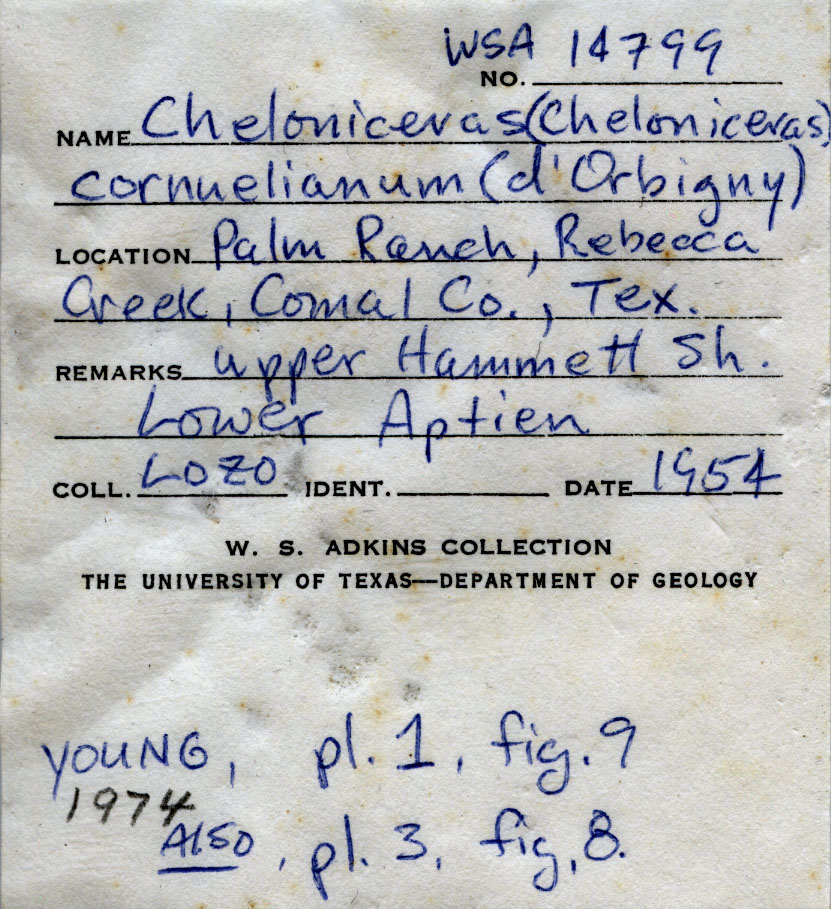 WSA 14799
NO.
NAME Cheloniceras (Cheloniceras)
cornuelianum (d'Orbigny)
LOCATION Palm Ranch, Rebecca
Creek, Comal Co., Tex.
REMARKS upper Hammett Sh.
Lower Aptien
COLL. LOZO IDENT. DATE 1954
W. S. ADKINS COLLECTION
THE UNIVERSITY OF TEXAS—DEPARTMENT OF GEOLOGY
YOUNG, pl. 1, fig. 9
1974
Also, pl. 3, fig, 8.